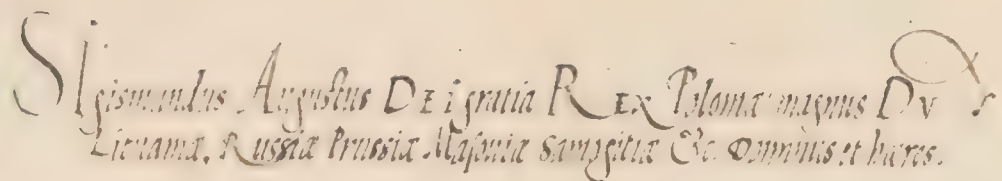 SIgismundus Augustus DEI gratia REX Poloniæ magnus DVX
Lituaniæ, Russiæ Prussiæ Masouiæ Samogitiæ &c. Dominus et hæres.